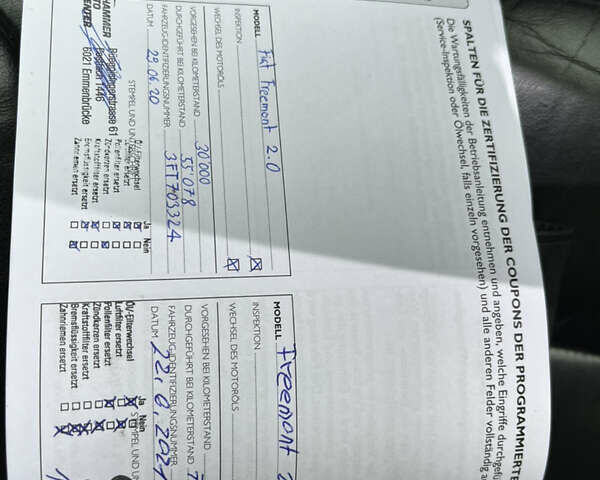 SPALTEN FÜR DIE ZERTIFIZIERUNG DER COUPONS DER PROGRAMMIERTE
Die Wartungsfälligkeiten der Betriebsanleitung entnehmen und angeben, welche Eingriffe durchgefü
(Service-Inspektion oder Ölwechsel, falls einzeln vorgesehen) und alle anderen Felder vollständig a
MODELL Fiat Freemont 2.0
INSPEKTION
WECHSEL DES MOTORÖLS
VORGESEHEN BEI KILOMETERSTAND 30'000
DURCHGEFÜHRT BEI KILOMETERSTAND 55'078
FAHRZEUGIDENTIFIZIERUNGSNUMMER 3FT703324
DATUM 29.04.20
STEMPEL UND UN
HAMMER
TO
ENTER
61
6021 Emmenbrücke
Ja Nein
Öl-/Filterwechsel
Luftfilter ersetzt
Pollenfilter ersetzt
Zündkerzen ersetzt
Kraftstofffilter ersetzt
Bremsflüssigkeit ersetzt
Zahnriemen ersetzt
MODELL Freemont 2
INSPEKTION
WECHSEL DES MOTORÖLS
VORGESEHEN BEI KILOMETERSTAND
DURCHGEFÜHRT BEI KILOMETERSTAND 7
FAHRZEUGIDENTIFIZIERUNGSNUMMER
DATUM
STEMPEL UND U
Ja Nein
Öl-/Filterwechsel
Luftfilter ersetzt
Pollenfilter ersetzt
Zündkerzen ersetzt
Kraftstofffilter ersetzt
Bremsflüssigkeit ersetzt
Zahnriemen ersetzt